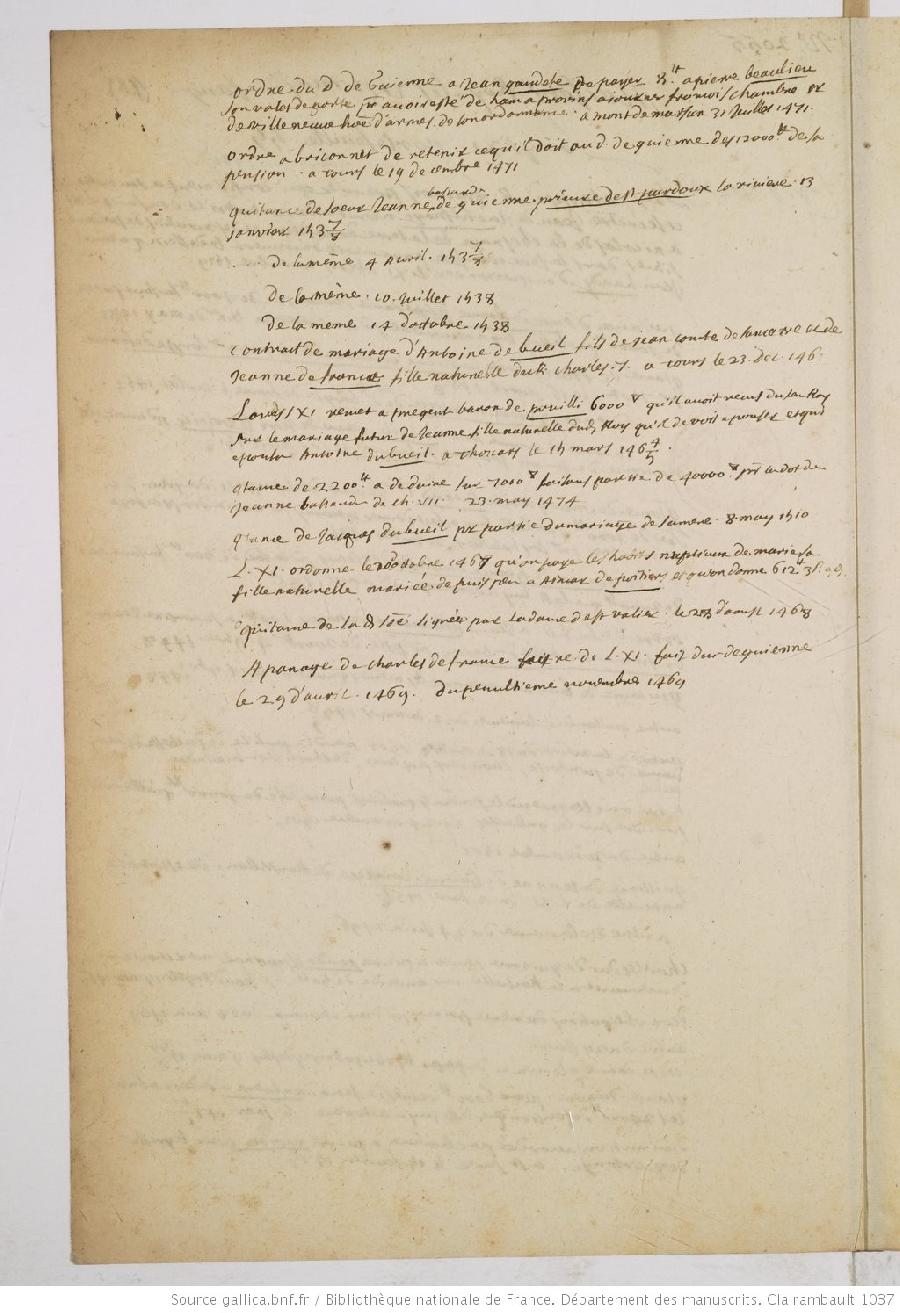 ordre du D. de Guienne a Jean gaudete po. payer 8.tt a pierre beaulieu
son valet de porte pr avoir esté de ham a provins a françois chambre sr
de villeneuve hoe d'armes de son ordonnance. a mont de marsan 31 Juillet 1471.
ordre a briconnet de retenir ce quil doit au d. de guienne des 12000tt de sa
pension. a tours le 19 decembre 1471
quitance de soeur Jeanne bastarde de guienne prieure de St pardoux la riviere. 13
janvier 1537/8
de la même 4 Avril. 1537/8
de la même. 10. Juillet 1538
de la meme 14 d'octobre. 1538
Contract de mariage d'Antoine de bueil fils de jean comte de sancerre et de
Jeanne de france fille naturelle du R. Charles. 7. a tours le 23. dec. 146
Louis XI. remet a pregent baron de 6000 qu'il avoit receus du feu Roy
sur le mariage futur de Jeanne fille naturelle dud. Roy qu'il devoit epouser et qui
epousa Antoine du bueil. a le 15 mars 1464/5.
qtance de 2200tt a de sur faisant partie de 40000 pr la dot de
Jeanne bastarde de Ch. VII. 23. may 1474
qtance de Jacques du bueil pr partie du mariage de sa mere. 8. may 1510
L. XI. ordonne le octobre 1467 qu'on paye les habits nuptiaux de marie sa
fille naturelle mariée depuis peu a Aimar de poitiers et qu'on donne 612tt 3s. 9d.
Quitance de la d. soe signée par la dame de St valier. le 23 d'aoust 1468
Apanage de Charles de france frere de L. XI. fait duc de guienne
le 29 d'avril. 1469. du penultieme novembre 1469
Source gallica.bnf.fr / Bibliothèque nationale de France. Département des manuscrits. Clairambault 1037